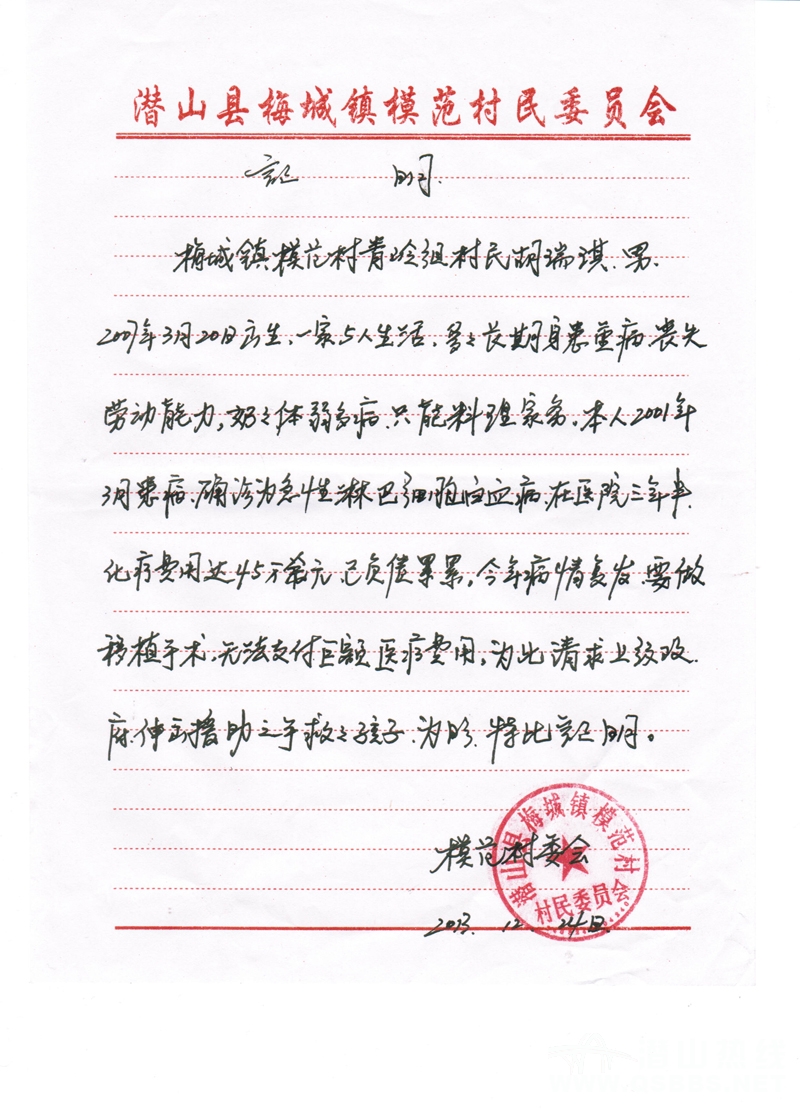 潜山县梅城镇模范村民委员会
证 明
梅城镇模范村青岭组村民胡瑞琪、男、
2007年3月20日出生、一家5人生活，爹之长期身患重病、丧失
劳动能力，奶之体弱多病、只能料理家务。本人2001年
3月患病、确诊为急性淋巴细胞白血病、在医院三年半、
化疗费用达45万余元、已负债累累。今年病情复发、要做
移植手术、无法支付巨额医疗费用。为此请求上级政
府伸出援助之手救之孩子、为盼、特此证明。
模范村委会
2013. 12. 24日
潜山县梅城镇模范村
村民委员会
潜山热线
WWW.QS085.NET